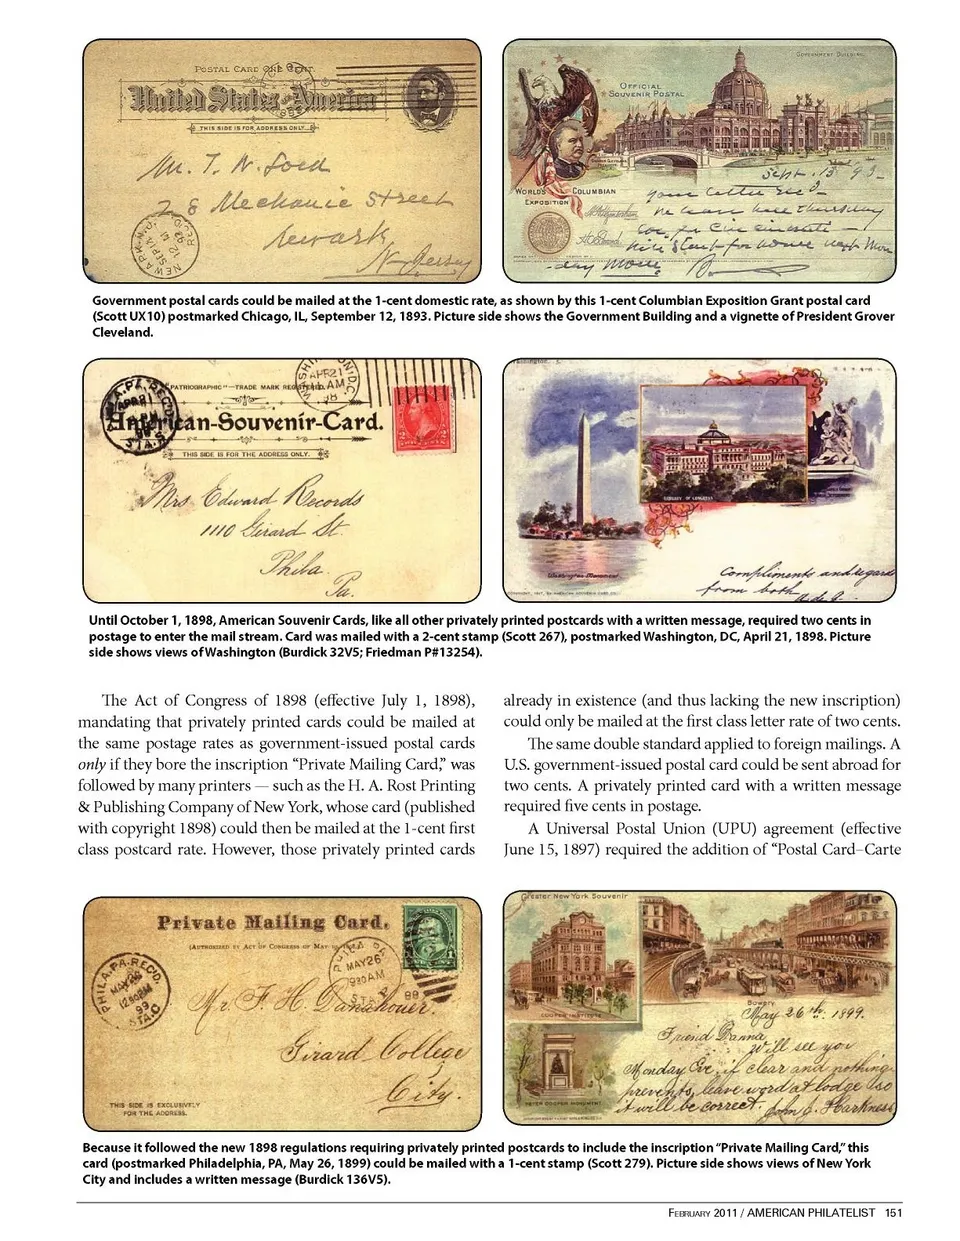 POSTAL CARD ONE CENT.
United States of America
THIS SIDE IS FOR ADDRESS ONLY.
Mr. T. N. Lord
28 Mechanic Street
Newark
N. Jersey
NEWARK, N.J.
REC'D.
GOVERNMENT BUILDING.
OFFICIAL
SOUVENIR POSTAL
WORLD'S COLUMBIAN
EXPOSITION
Sept. 13 93
Government postal cards could be mailed at the 1-cent domestic rate, as shown by this 1-cent Columbian Exposition Grant postal card
(Scott UX10) postmarked Chicago, IL, September 12, 1893. Picture side shows the Government Building and a vignette of President Grover
Cleveland.
"PATRIOGRAPHIC"—TRADE MARK REGISTERED.
American-Souvenir-Card.
THIS SIDE IS FOR THE ADDRESS ONLY.
Mrs Edward Records
1110 Girard St.
Phila.
Pa.
Washington.
LIBRARY OF CONGRESS
Washington Monument
Compliments and regards
from both
Until October 1, 1898, American Souvenir Cards, like all other privately printed postcards with a written message, required two cents in
postage to enter the mail stream. Card was mailed with a 2-cent stamp (Scott 267), postmarked Washington, DC, April 21, 1898. Picture
side shows views of Washington (Burdick 32V5; Friedman P#13254).
The Act of Congress of 1898 (effective July 1, 1898),
mandating that privately printed cards could be mailed at
the same postage rates as government-issued postal cards
only if they bore the inscription “Private Mailing Card,” was
followed by many printers — such as the H. A. Rost Printing
& Publishing Company of New York, whose card (published
with copyright 1898) could then be mailed at the 1-cent first
class postcard rate. However, those privately printed cards
already in existence (and thus lacking the new inscription)
could only be mailed at the first class letter rate of two cents.
The same double standard applied to foreign mailings. A
U.S. government-issued postal card could be sent abroad for
two cents. A privately printed card with a written message
required five cents in postage.
A Universal Postal Union (UPU) agreement (effective
June 15, 1897) required the addition of “Postal Card–Carte
Private Mailing Card.
(AUTHORIZED BY ACT OF CONGRESS OF MAY
PHILA, PA. REC'D.
12 30 PM
99
STA. C
MAY 26
9 30 AM
Mr. F. H. Danenhower.
Girard College
City.
THIS SIDE IS EXCLUSIVELY
FOR THE ADDRESS.
Greater New York Souvenir
COOPER INSTITUTE
Bowery.
PETER COOPER MONUMENT
May 26th. 1899.
Friend Danna
Will see you
Monday Eve, if clear and nothing
prevents, leave word at lodge so
it will be correct. John J. Harkness
Because it followed the new 1898 regulations requiring privately printed postcards to include the inscription “Private Mailing Card,” this
card (postmarked Philadelphia, PA, May 26, 1899) could be mailed with a 1-cent stamp (Scott 279). Picture side shows views of New York
City and includes a written message (Burdick 136V5).
FEBRUARY 2011 / AMERICAN PHILATELIST 151